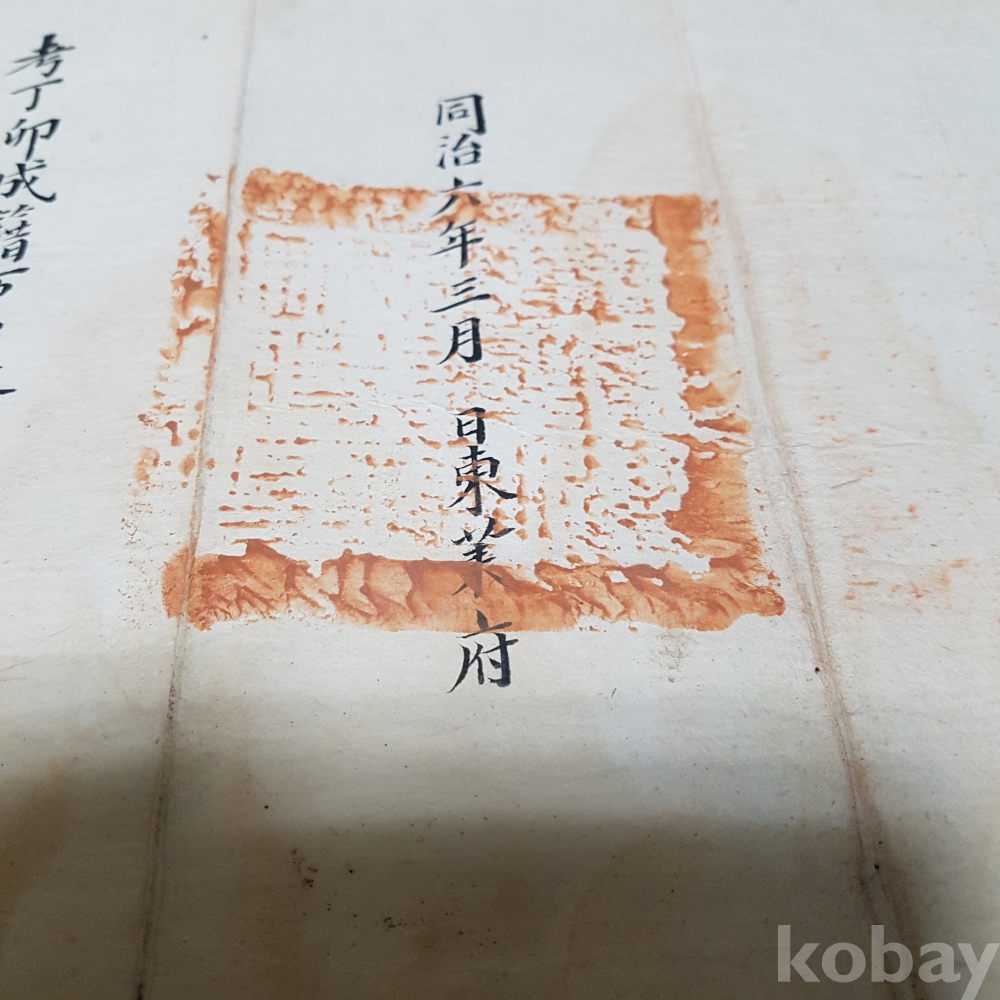 同治六年三月 日東萊府
考丁卯成籍
kobay